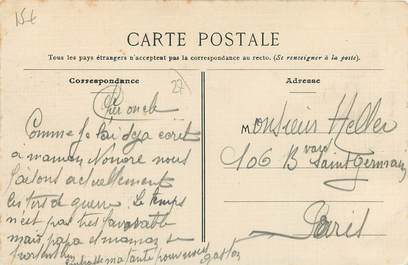 15€
CARTE POSTALE
Tous les pays étrangers n'acceptent pas la correspondance au recto. (Se renseigner à la poste).
Correspondance
27
Cher oncle
Comme je t'ai deja ecrit
à maman Nonore nous
faisons actuellement
les tirs de guerre. Le temps
n'est pas tres favorable
mais papa et maman se
portent bien
Embrasse ma tante pour nous
gaston
Adresse
Monsieur Heller
106 Bvard Saint Germain
Paris